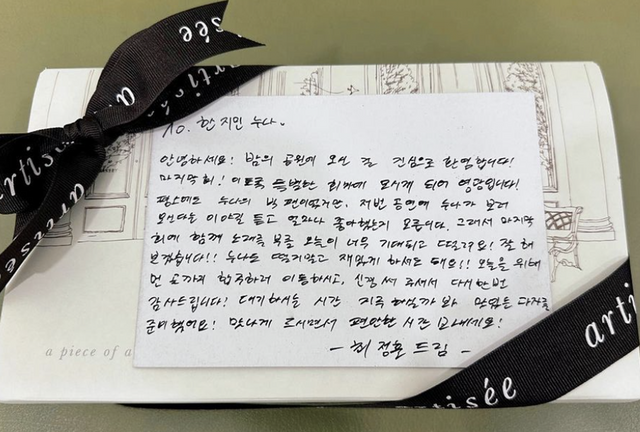 artisée
artisée
artisée
To. 한지민 누나.
안녕하세요! 밤의 공원에 오신 걸 진심으로 환영합니다!
마지막회! 이토록 특별한 회차에 모시게 되어 영광입니다!
평소에도 누나의 빅 팬이었지만, 저번 공연에 누나가 보러
오신다는 이야길 듣고 얼마나 좋아했는지 모릅니다. 그래서 마지막
회에 함께 노래를 부를 오늘이 너무 기대되고 떨려요! 잘 해
보겠습니다!! 누나도 떨지말고 재밌게 하셔도 돼요!! 오늘을 위해
먼 곳까지 합주하러 이동하시고, 신경 써 주셔서 다시한번
감사드립니다! 대기하시는 시간 지루하실까 봐 맛있는 다과를
준비했어요! 맛나게 드시면서 편안한 시간 보내세요!
- 최정훈 드림 -
a piece of a
artisée
arti